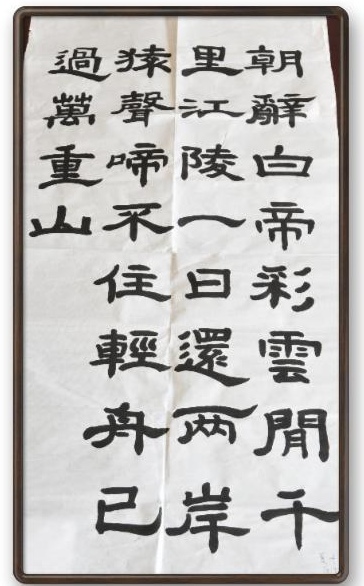 朝辭白帝彩雲閒千
里江陵一日還两岸
猿聲啼不住輕舟已
過萬重山